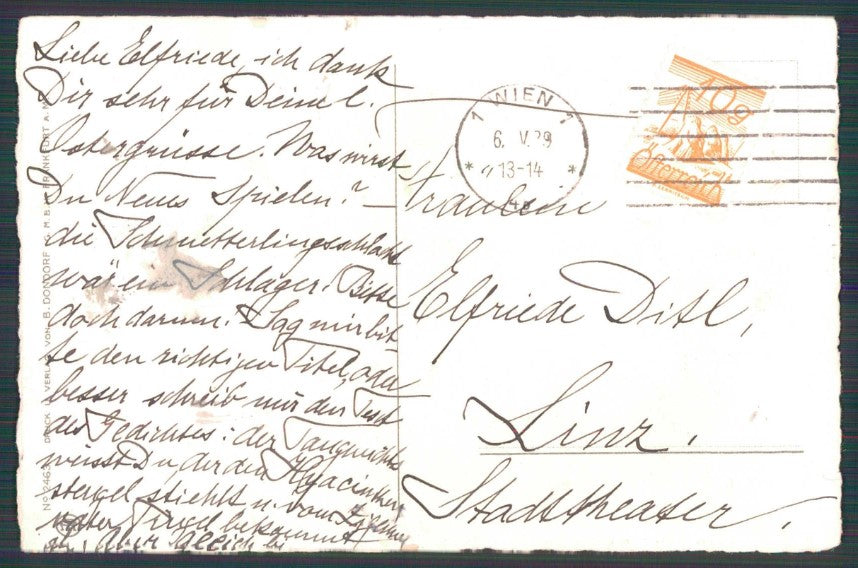 Liebe Elfriede, ich dank
Dir sehr für Deine l.
Ostergrüsse. Was wirst
Du Neues Spielen? –
die Schmetterlingsschlacht
wär ein Schlager! Bitte
doch darum. Sag mir bit
te den richtigen Titel, oder
besser schreib mir den Text
des Gedichtes: der Taugenichts
weisst Du der den Hyacinthen
stengel stiehlt u. vom
Prügel bekommt
aber gleich
No 2463 DRUCK U. VERLAG VON B. DONDORF G.M.B.H. FRANKFURT A. M.
1 WIEN 1
6. V. 29
13-14
10g
Österreich
Fräulein
Elfriede Ditl,
Linz,
Stadttheater.